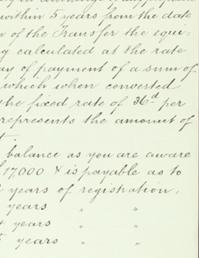 within 5 years from the date
of the Transfer the equi-
y calculated at the rate
ay of payment of a sum of
which when converted
the fixed rate of 36d per
represents the amount of
balance as you are aware
17,000 & is payable as to
years of registration,
years " "
years " "
years " "